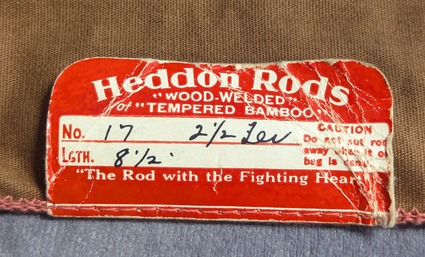 Heddon Rods
"WOOD-WELDED"
of "TEMPERED BAMBOO"
No. 17 2 1/2 Lev
LGTH. 8 1/2'
CAUTION
Do not put rod
away when it or
bug is
"The Rod with the Fighting Heart"